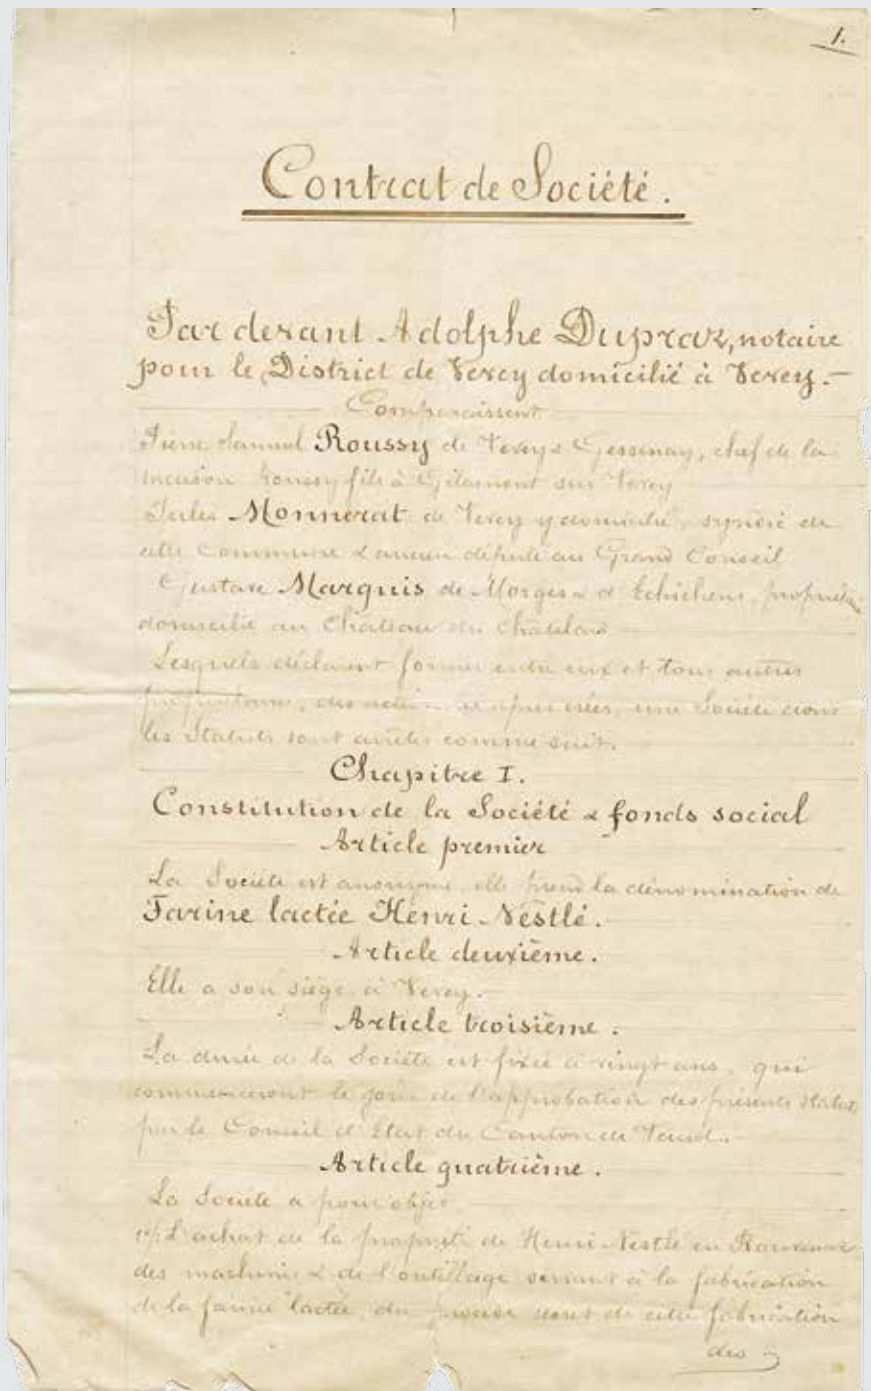 1.
Contrat de Société.
Par devant Adolphe Dupraz, notaire
pour le District de Vevey domicilié à Vevey.-
Comparaissent
Pierre Samuel Roussy de Vevey & Gessenay, chef de la
maison Roussy fils à Gilamont sur Vevey
Jules Monnerat de Vevey y domicilié, syndic de
cette Commune & ancien député au Grand Conseil
Gustave Marquis de Morges & d'Echichens, propriétaire
domicilié au Château du Châtelard
Lesquels déclarent former entre eux et tous autres
propriétaires, des actions ci après créées, une Société dont
les Statuts sont arrêtés comme suit.
Chapitre I.
Constitution de la Société & fonds social
Article premier
La Société est anonyme, elle prend la dénomination de
Farine lactée Henri Nestlé.
Article deuxième.
Elle a son siège à Vevey.
Article troisième.
La durée de la Société est fixée à vingt ans, qui
commenceront le jour de l'approbation des présents statuts
par le Conseil d'Etat du Canton de Vaud.-
Article quatrième.
La Société a pour objet
1º/ L'achat de la propriété de Henri Nestlé en
des machines & de l'outillage servant à la fabrication
de la farine lactée, du procédé secret de cette fabrication
des